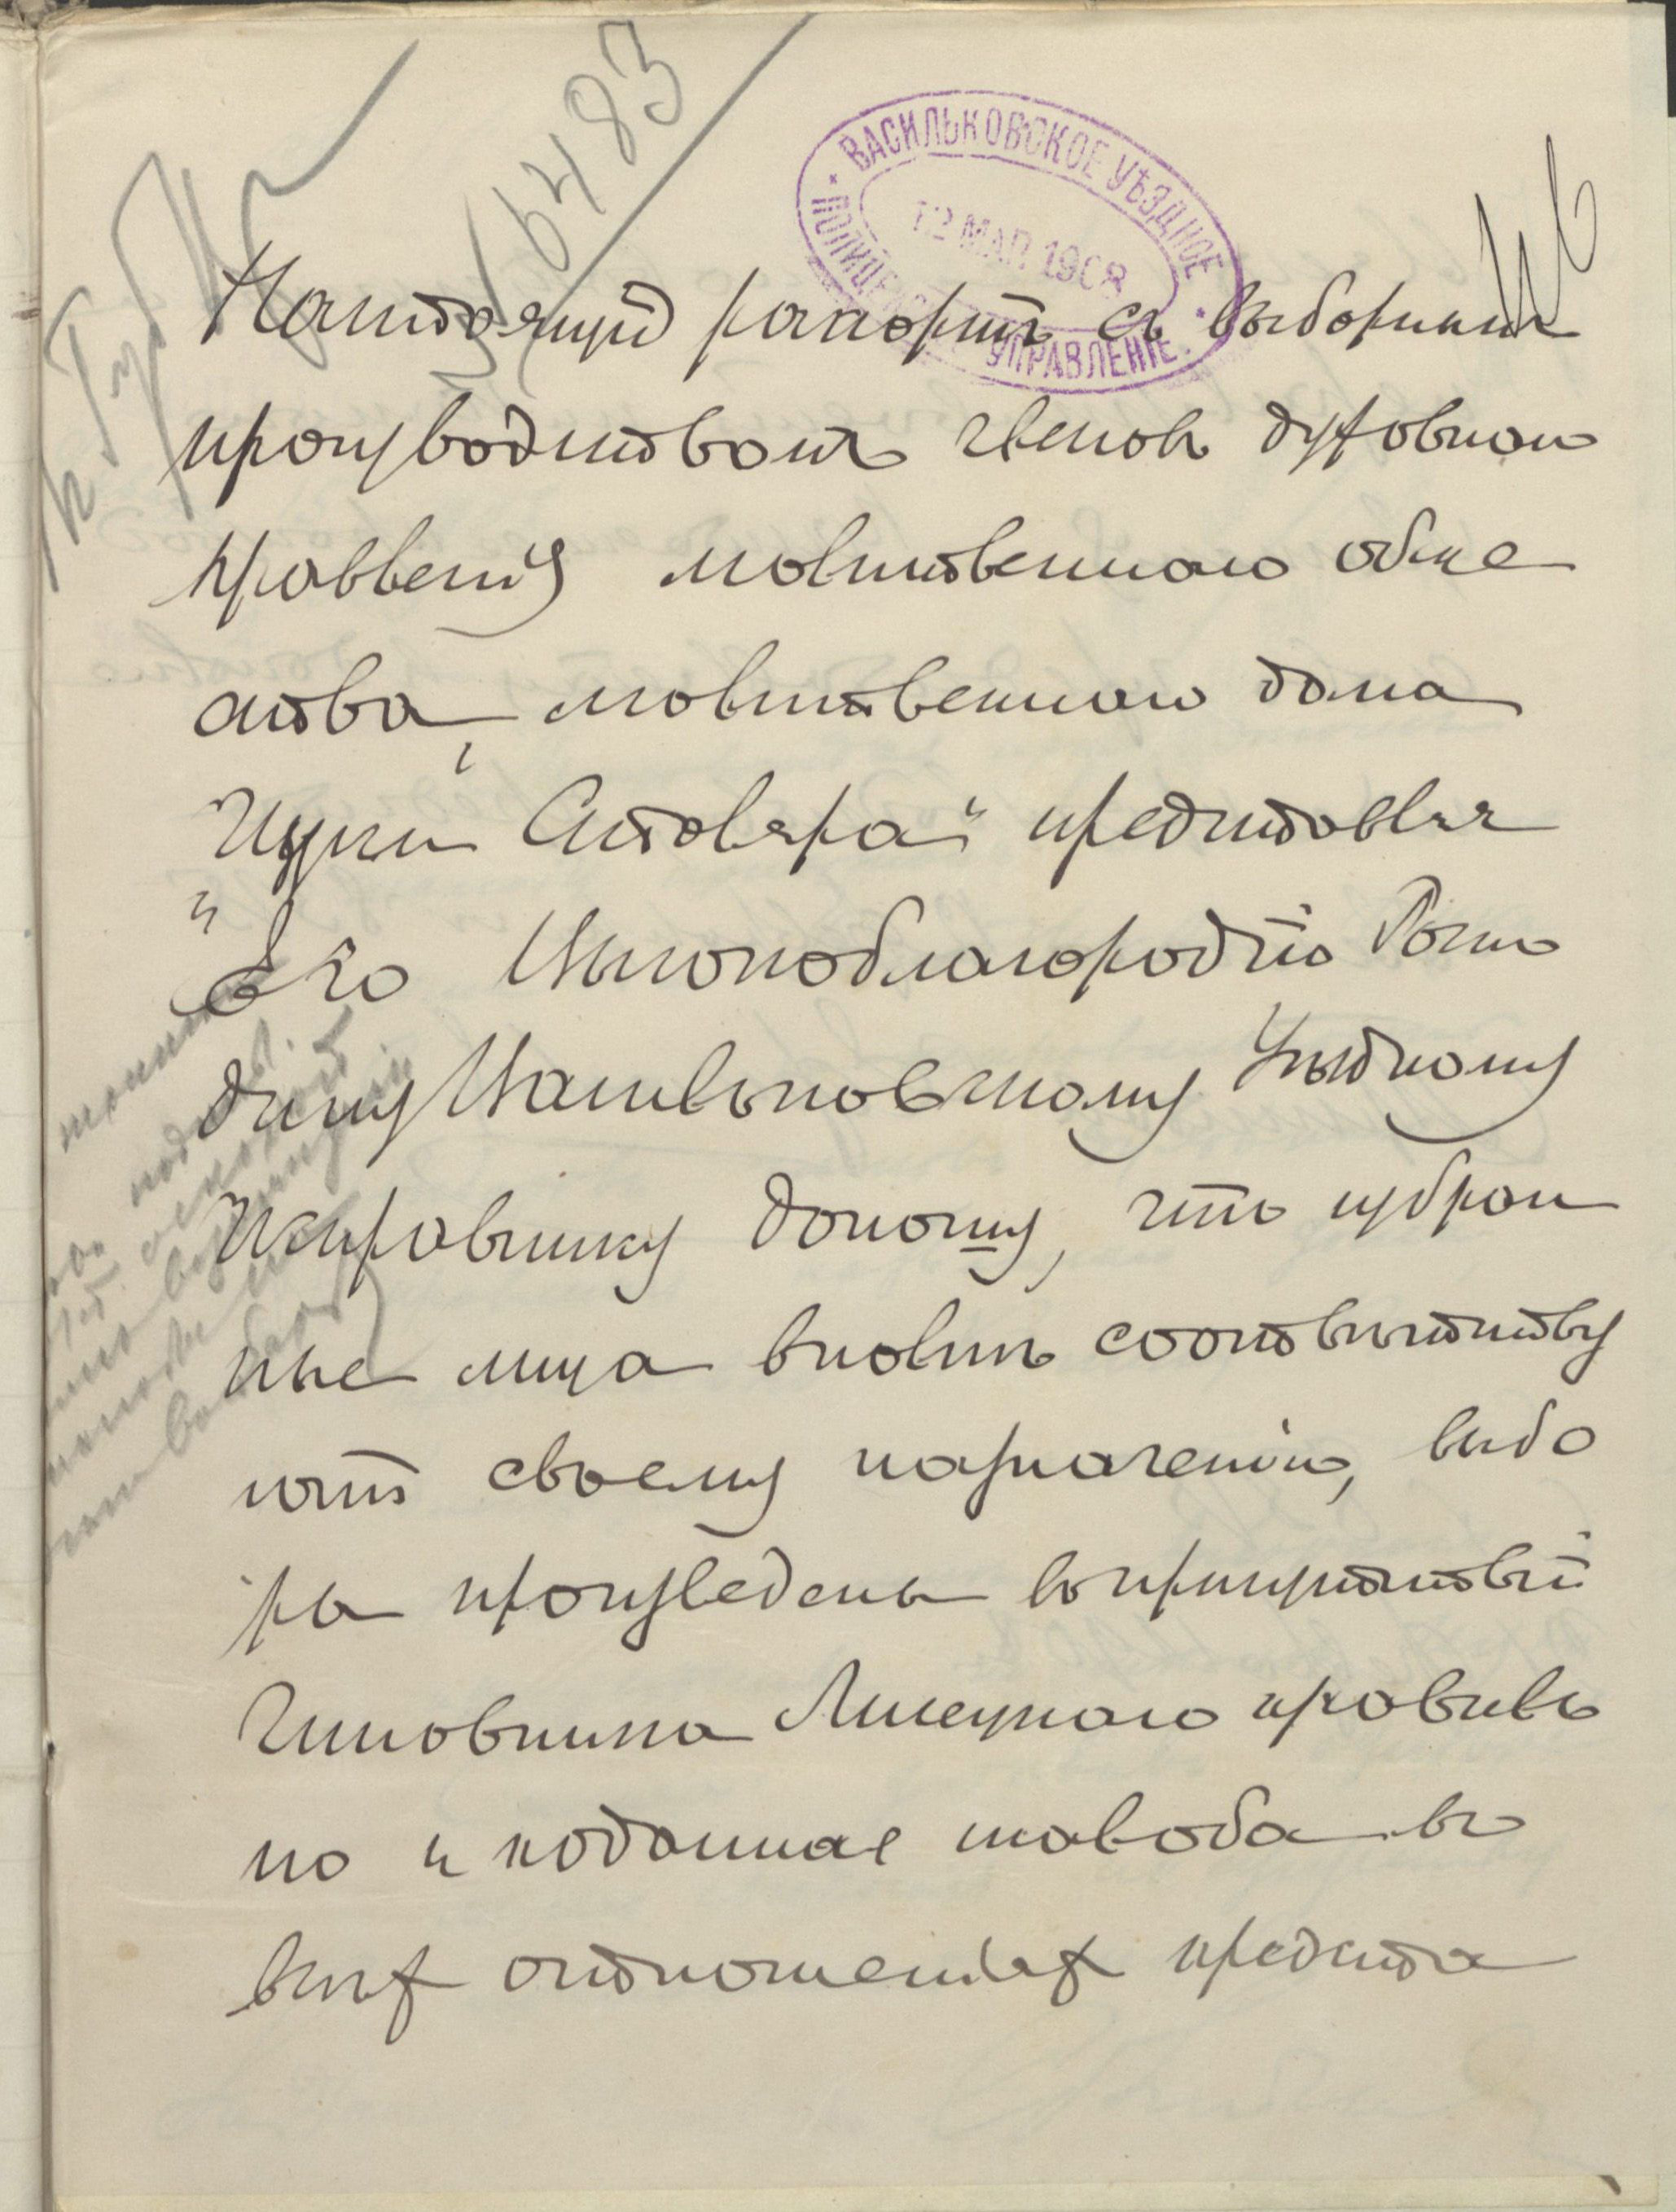 6483
ВАСИЛЬКОВСКОЕ УѢЗДНОЕ
ПОЛИЦЕЙСКОЕ УПРАВЛЕНІЕ
12 МАР. 1908
Настоящій рапортъ съ выборнымъ
производствомъ членовъ духовнаго
правленія молитвеннаго обще
ства, молитвеннаго дома
Ицки Столяра" представляя
Его Высокоблагородію Госпо
дину Васильковскому Уѣздному
Исправнику доношу, что избран
ные лица вполнѣ соотвѣтству
ютъ своему назначенію, выбо
ры произведены въ присутствіи
Чиновника Липецкаго правиль
но и поданная жалоба въ
всѣх отношеніях предста